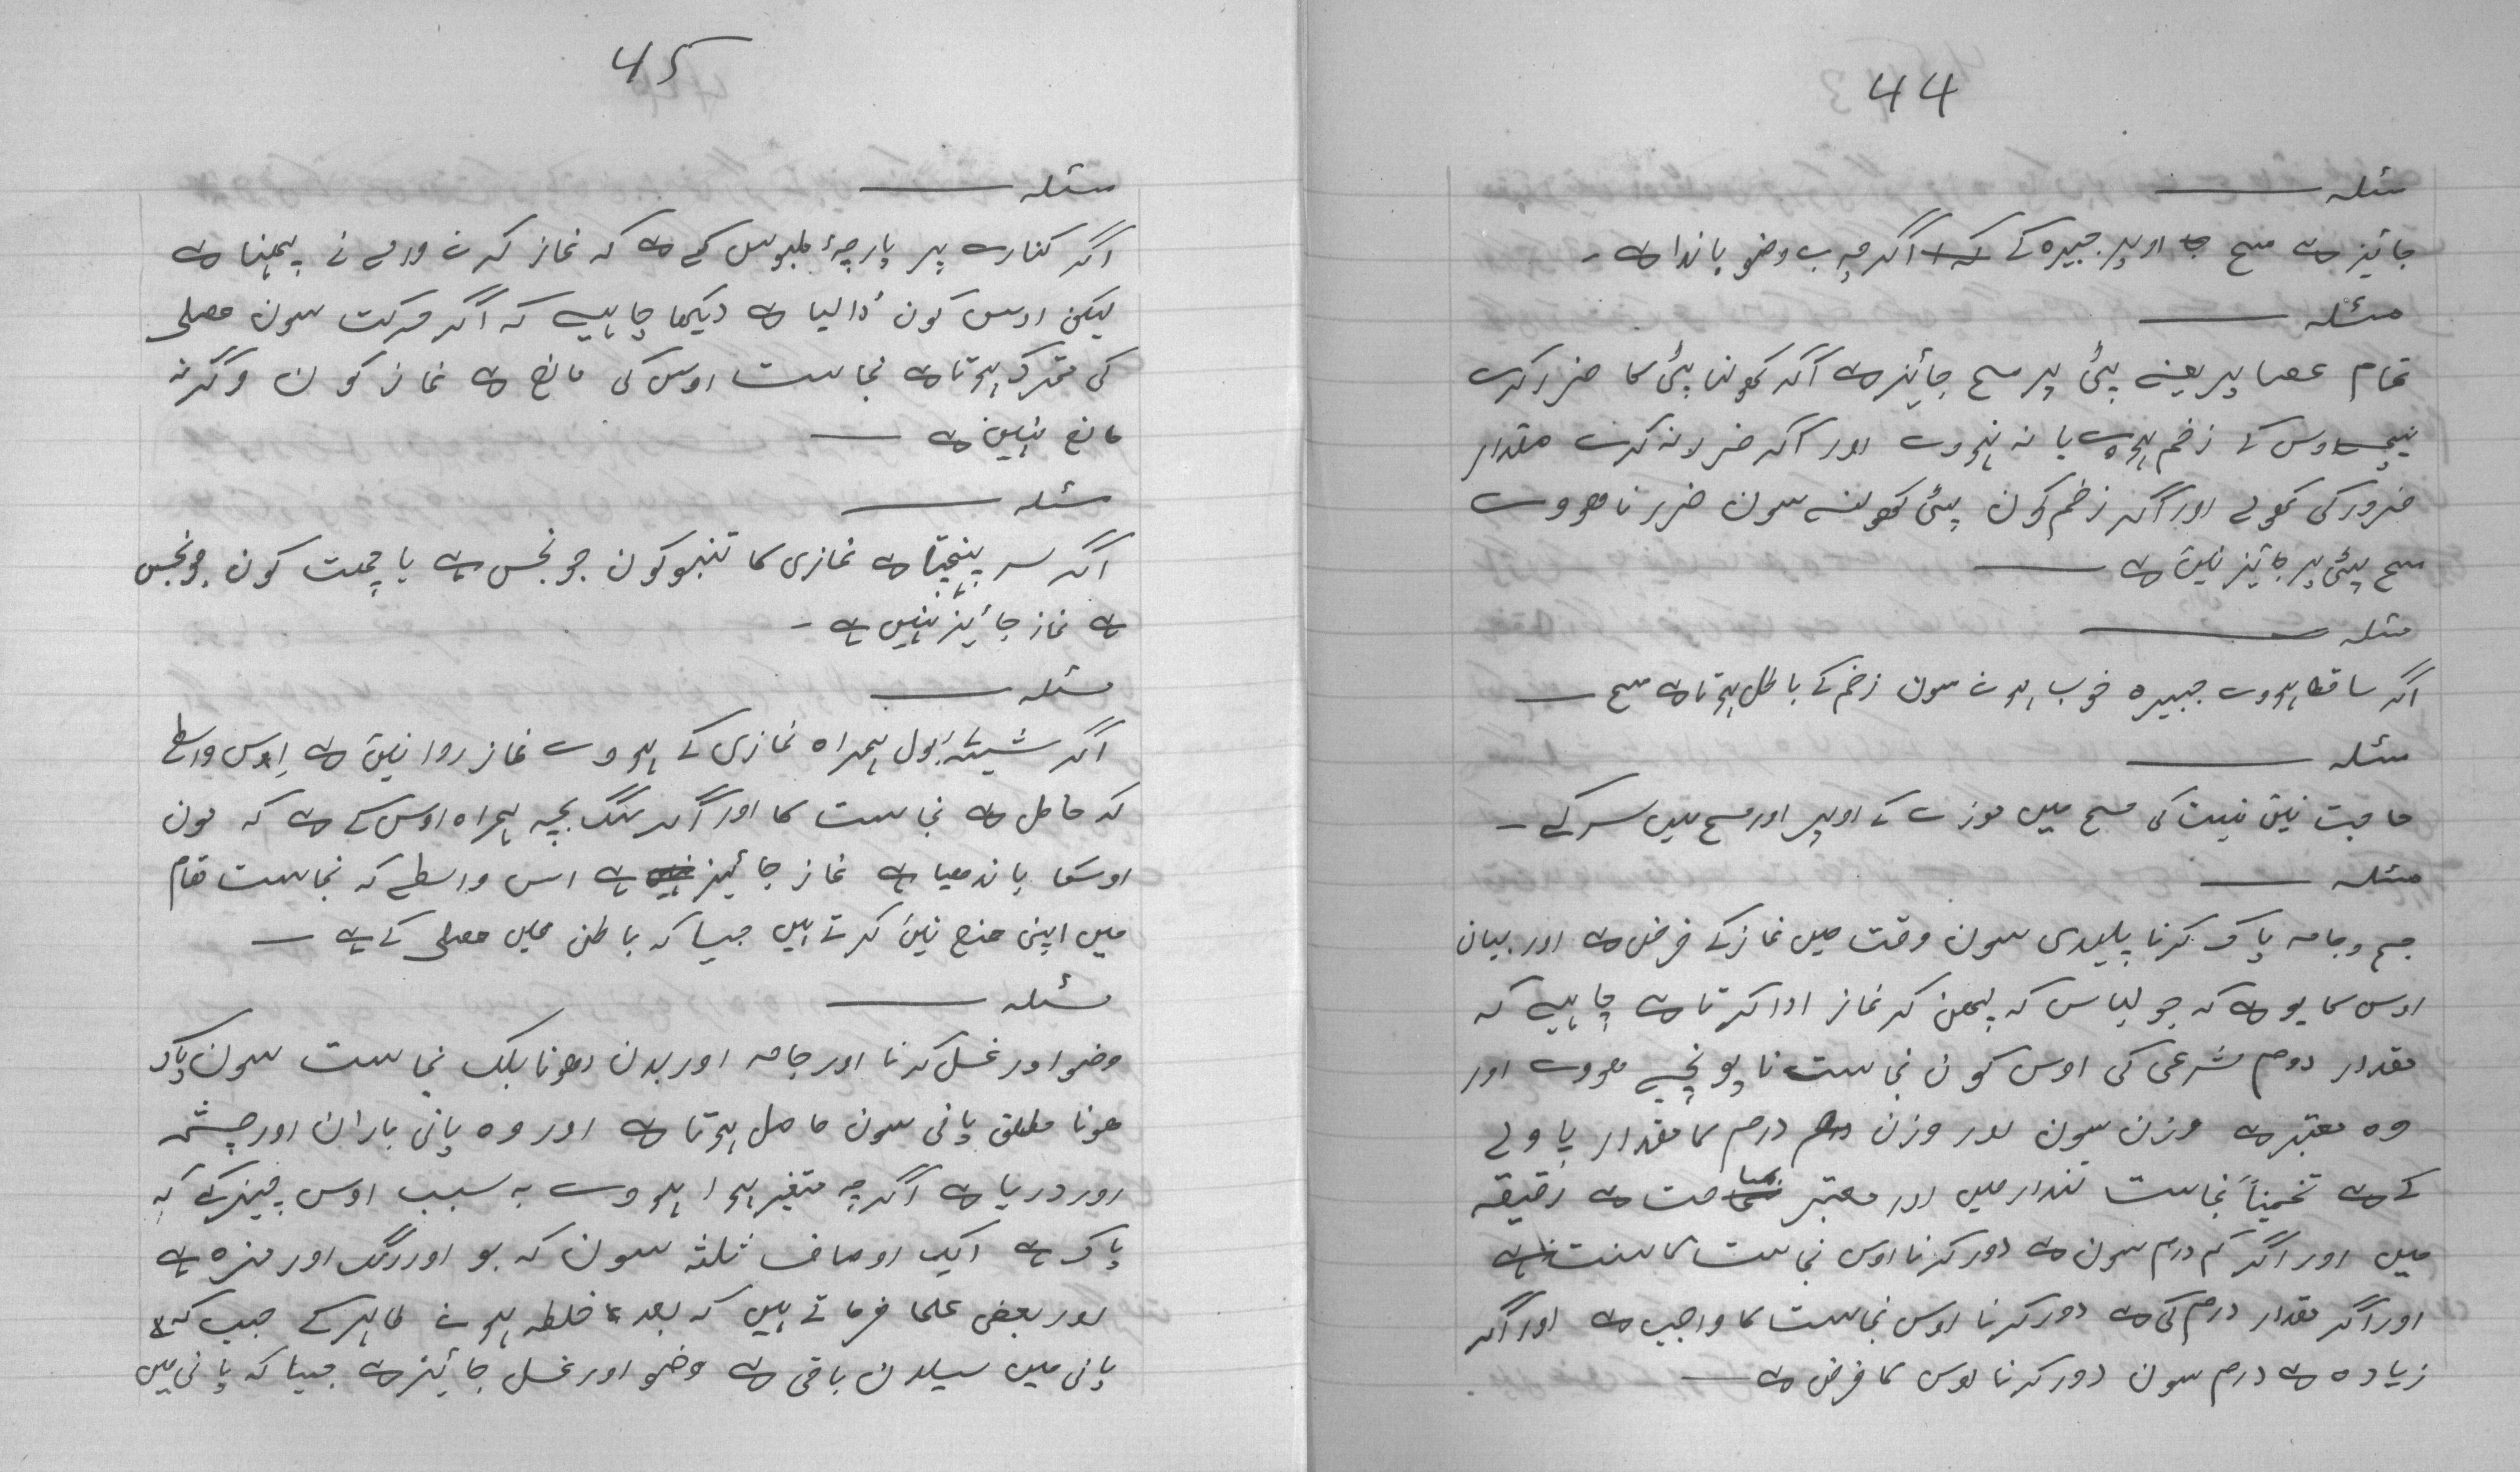 44
مسئلہ
جائیز ہے مسح اوپر جبیرہ کے اگرچہ بے وضو باندا ہے -
مسئلہ
تمام عصابہ یعنے پٹی پر مسح جائیز ہے اگر کھولنا پٹی کا ضرر کرے
نیچے اوس کے زخم ہووے یا نہ ہووے اور اگر ضرر نہ کرے مقدار
ضرور کی کھولے اور اگر زخم کون پٹی کھولنے سون ضرر نا ھووے
مسح پٹی پر جائیز نیں ہے
مسئلہ
اگر ساقط ہووے جبیرہ خوب ہونے سون زخم کے باطل ہوتا ہے مسح
مسئلہ
حاجت نیں نیت کی مسح میں موزے کے اوپر اور مسح میں سر کے -
مسئلہ
جسم و جامہ پاک کرنا پلیدی سون وقت میں نماز کے فرض ہے اور بیان
اوس کا یو ہے کہ جو لباس کہ پہن کر نماز ادا کرتا ہے چاہیے کہ
مقدار درم شرعی کی اوس کون نجاست نا پونچے ھووے اور
وہ معتبر ہے وزن سون اور وزن درم کا مقدار پاولے
کے ہے تخمیناً نجاست تندار میں اور معتبر مساحت ہے رقیقہ
میں اور اگر کم درم سون ہے دور کرنا اوس نجاست کا سنت ہے
اور اگر مقدار درم کی ہے دور کرنا اوس نجاست کا واجب ہے اور اگر
زیادہ ہے درم سون دور کرنا اوس کا فرض ہے
45
مسئلہ
اگر کنارے پر پارچۂ ملبوس کے ہے کہ نماز کرنے والے نے پہنا ہے
لیکن اوس کون ڈالیا ہے دیکھا چاہیے کہ اگر حرکت سون مصلی
کی متحرک ہوتا ہے نجاست اوس کی مانع ہے نماز کون وگرنہ
مانع نہیں ہے
مسئلہ
اگر سر پنہچتا ہے نمازی کا تنبو کون جو نجس ہے یا چھت کون جو نجس
ہے نماز جائیز نہیں ہے -
مسئلہ
اگر شیشۂ بول ہمراہ نمازی کے ہووے نماز روا نیں ہے اوس واسطے
کہ حامل ہے نجاست کا اور اگر سگ بچہ ہمراہ اوس کے ہے کہ مون
اوسکا باندھیا ہے نماز جائیز ہے اس واسطے کہ نجاست مقام
میں اپنی منع نیں کرتے ہیں جیسا کہ باطن میں مصلی کے ہے
مسئلہ
وضو اور غسل کرنا اور جامہ اور بدن دھونا بلک نجاست سون پاک
ھونا مطلق پانی سون حاصل ہوتا ہے اور وہ پانی باران اور چشمہ
اور دریا ہے اگرچہ متغیر ہوا ہووے بہ سبب اوس چیز کے کہ
پاک ہے ایک اوصاف ثلثہ سون کہ بو اور رنگ اور مزہ ہے
اور بعض علما فرماتے ہیں کہ بعد خلطہ ہونے طاہر کے جب کہ
پانی میں سیلان باقی ہے وضو اور غسل جائیز ہے جیسا کہ پانی میں